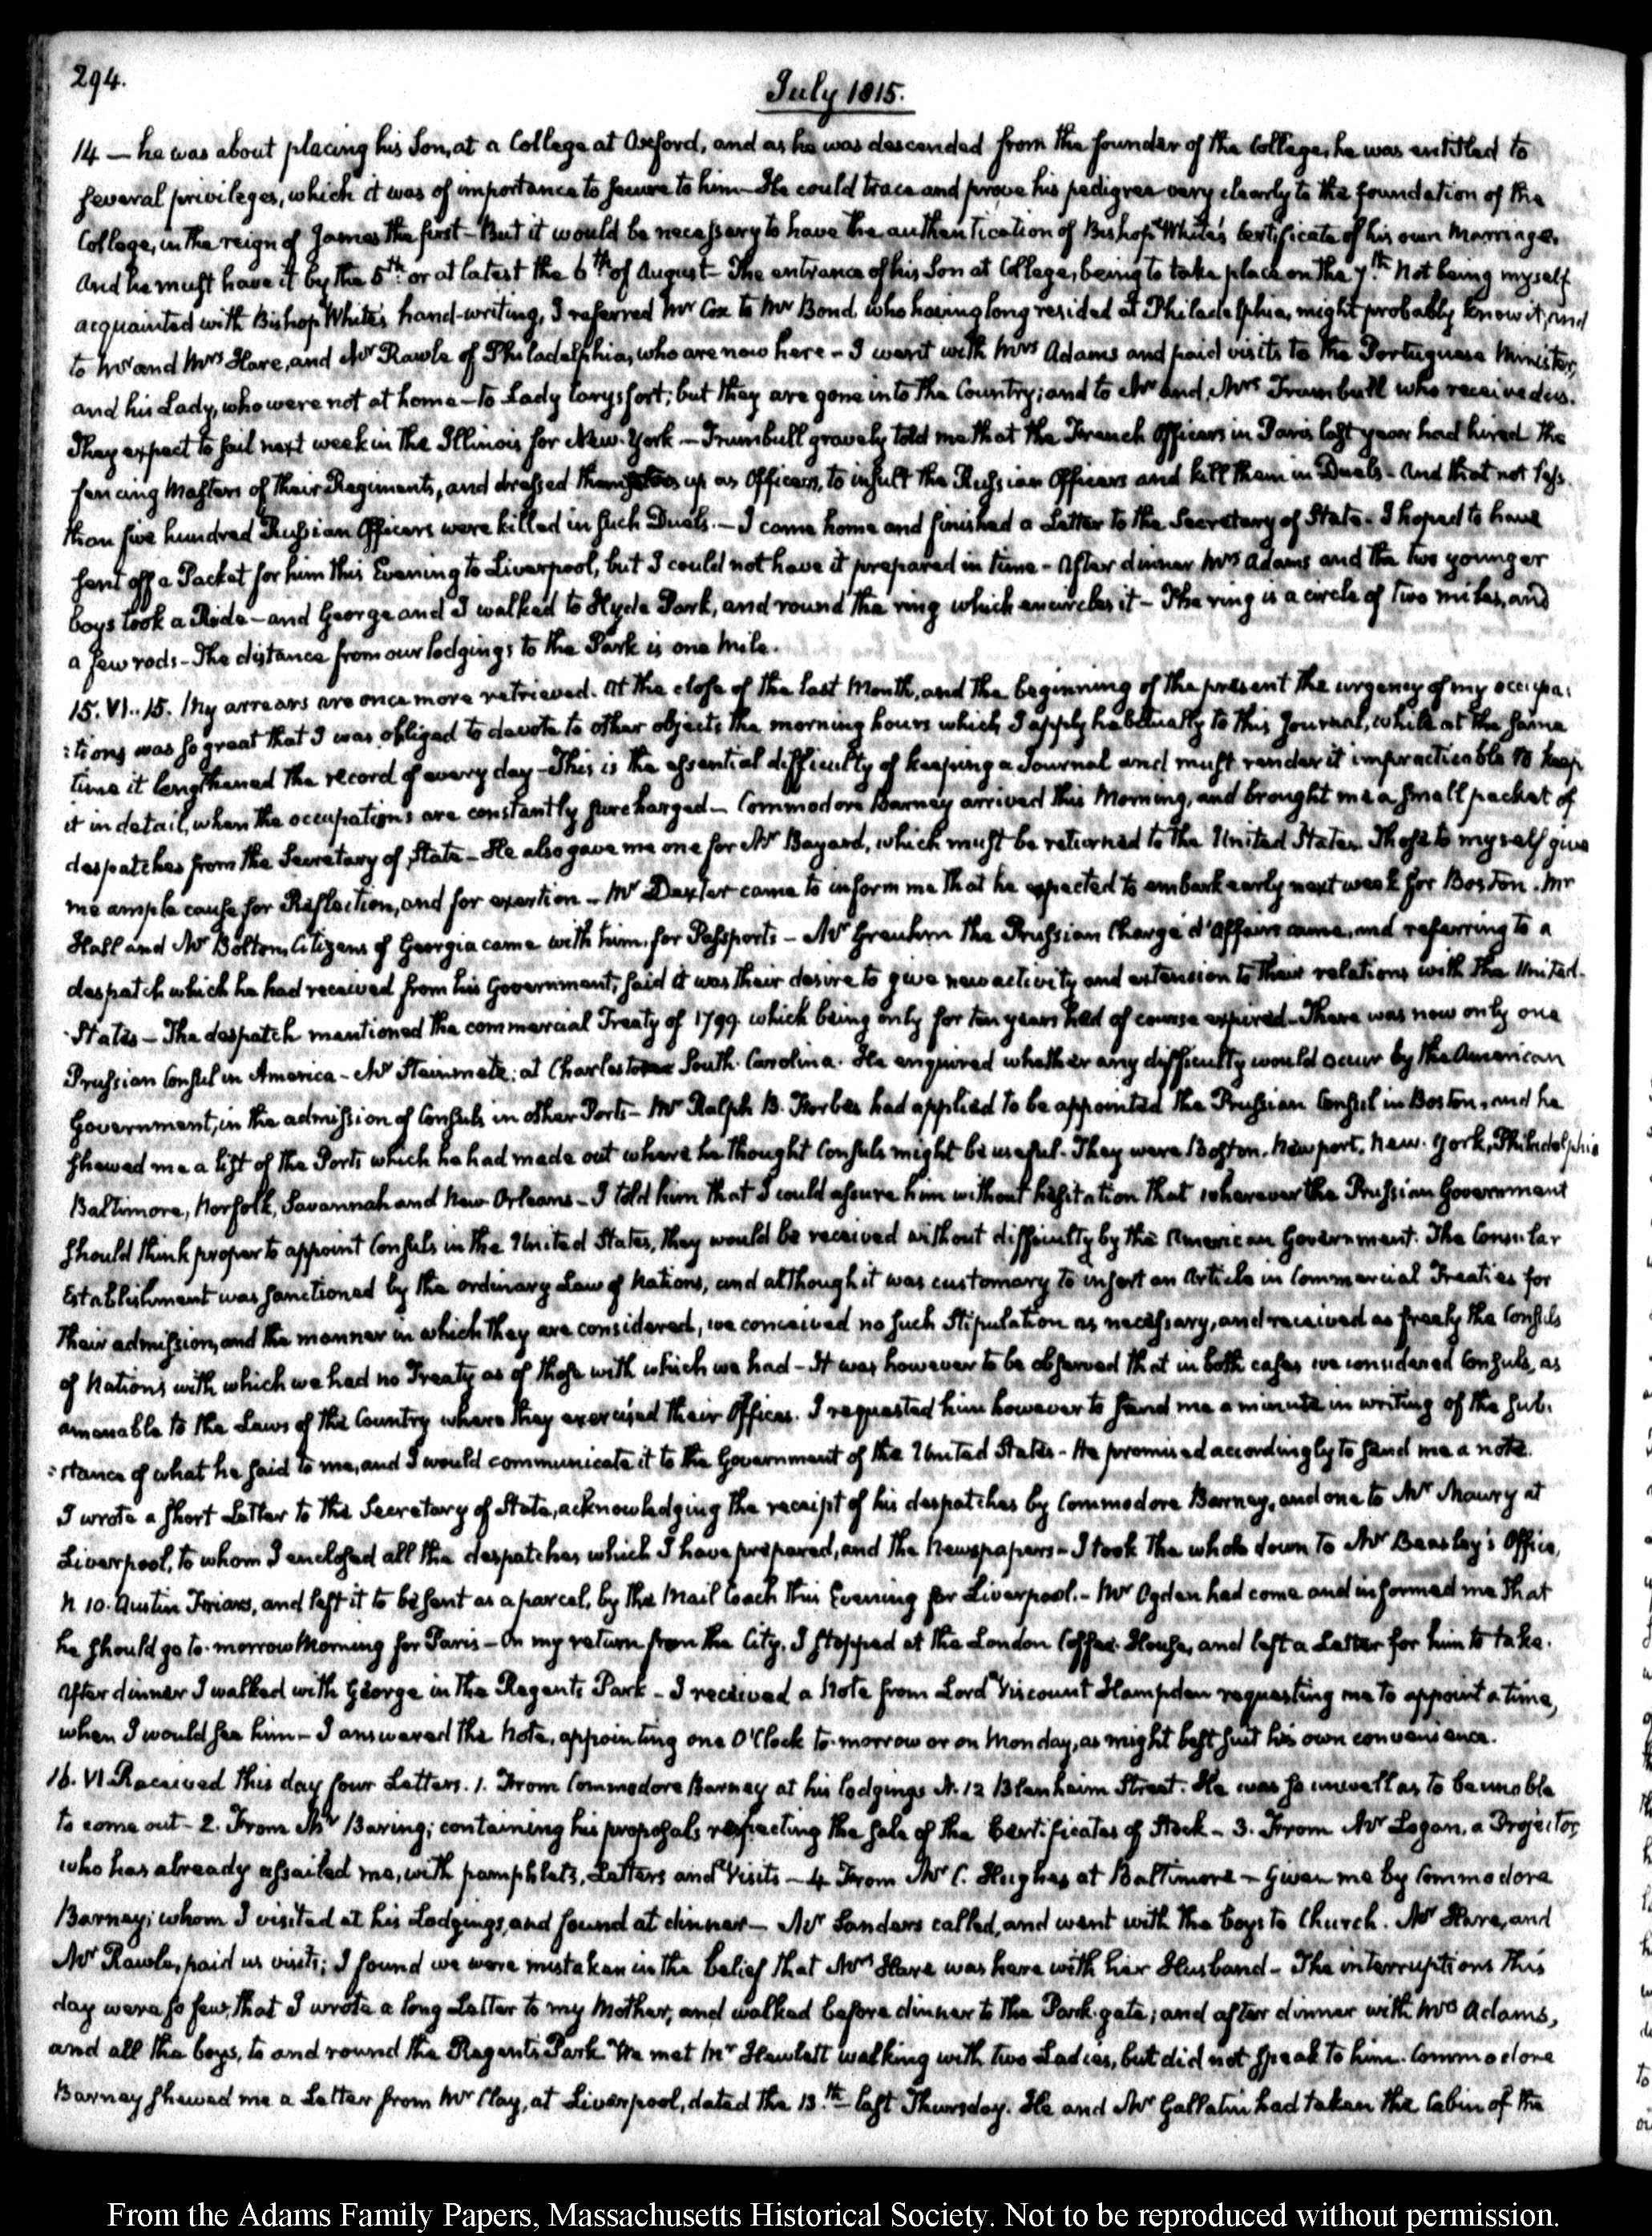 294.
July 1815.
14 — he was about placing his Son, at a College at Oxford, and as he was descended from the founder of the College, he was entitled to
several privileges, which it was of importance to secure to him — He could trace and prove his pedigree very clearly to the foundation of the
College, in the reign of James the first — But it would be necessary to have the authentication of Bishop White's Certificate of his own Marriage,
and he must have it by the 5th or at latest the 6th of August — The entrance of his Son at College, being to take place on the 7th. Not being myself
acquainted with Bishop White's hand-writing, I referred Mr Cox to Mr Bond who having long resided at Philadelphia, might probably know it, and
to Mr and Mrs Hare, and Mr Rawle of Philadelphia, who are now here — I went with Mrs Adams and paid visits to the Portuguese Minister,
and his Lady, who were not at home — to Lady Carysfort; but they are gone into the Country; and to Mr and Mrs Trumbull who received us.
They expect to sail next week in the Illinois for New-York — Trumbull gravely told me that the French Officers in Paris last year had hired the
fencing Masters of their Regiments, and dressed them up as Officers, to insult the Russian Officers and kill them in Duels — And that not less
than five hundred Russian Officers were killed in such Duels. — I came home and finished a Letter to the Secretary of State. I hoped to have
sent off a Packet for him this Evening to Liverpool, but I could not have it prepared in time — After dinner Mrs Adams and the two younger
boys took a Ride — and George and I walked to Hyde Park, and round the ring which encircles it — The ring is a circle of two miles, and
a few rods — The distance from our lodgings to the Park is one Mile.
15. VI..15. My arrears are once more retrieved. At the close of the last Month, and the beginning of the present the urgency of my occupa:
:tions was so great that I was obliged to devote to other objects the morning hours which I apply habitually to this Journal, while at the same
time it lengthened the record of every day — This is the essential difficulty of keeping a Journal and must render it impracticable to keep
it in detail, when the occupations are constantly surcharged — Commodore Barney arrived this Morning, and brought me a small packet of
despatches from the Secretary of State — He also gave me one for Mr Bayard, which must be returned to the United States. Those to myself give
me ample cause for Reflection, and for exertion — Mr Dexter came to inform me that he expected to embark early next week for Boston. Mr
Hall and Mr Bolton, Citizens of Georgia came with him, for Passports — Mr Greuhm the Prussian Chargé d'Affaires came, and referring to a
despatch which he had received from his Government, said it was their desire to give new activity and extension to their relations with the United-
States — The despatch mentioned the commercial Treaty of 1799 which being only for ten years had of course expired — There was now only one
Prussian Consul in America — Mr Steinmetz; at Charleston South-Carolina. He enquired whether any difficulty would occur by the American
Government, in the admission of Consuls in other Ports — Mr Ralph B. Forbes had applied to be appointed the Prussian Consul in Boston, and he
shewed me a list of the Ports which he had made out where he thought Consuls might be useful. They were Boston, Newport, New-York, Philadelphia
Baltimore, Norfolk, Savannah and New Orleans — I told him that I could assure him without hesitation that wherever the Prussian Government
should think proper to appoint Consuls in the United States, they would be received without difficulty by the American Government. The Consular
Establishment was sanctioned by the ordinary Law of Nations, and although it was customary to insert an Article in Commercial Treaties for
their admission, and the manner in which they are considered, we conceived no such Stipulation as necessary, and received as freely the Consuls
of Nations with which we had no Treaty as of those with which we had — It was however to be observed that in both cases we considered Consuls, as
amenable to the Laws of the Country where they exercised their Offices. I requested him however to send me a minute in writing of the sub:
:stance of what he said to me, and I would communicate it to the Government of the United States — He promised accordingly to send me a note.
I wrote a short Letter to the Secretary of State, acknowledging the receipt of his despatches by Commodore Barney, and one to Mr Maury at
Liverpool, to whom I enclosed all the despatches which I have prepared, and the Newspapers — I took the whole down to Mr Beasley's Office,
N 10. Austin Friars, and left it to be sent as a parcel, by the Mail Coach this Evening for Liverpool. — Mr Ogden had come and informed me that
he should go to-morrow Morning for Paris — On my return from the City, I stopped at the London Coffee-House, and left a Letter for him to take.
After dinner I walked with George in the Regents Park — I received a Note from Lord Viscount Hampden requesting me to appoint a time,
when I would see him — I answered the Note, appointing one O'Clock to-morrow or on Monday, as might best suit his own convenience.
16. VI Received this day four Letters. 1. From Commodore Barney at his lodgings N. 12 Blenheim Street. He was so unwell as to be unable
to come out — 2. From Mr Baring; containing his proposals respecting the sale of the Certificates of Stock — 3. From Mr Logan, a Projector,
who has already assailed me, with pamphlets, Letters and Visits — 4 From Mr C. Hughes at Baltimore — Given me by Commodore
Barney; whom I visited at his Lodgings, and found at dinner — Mr Sanders called, and went with the boys to Church. Mr Hare, and
Mr Rawle, paid us visits; I found we were mistaken in the belief that Mrs Hare was here with her Husband — The interruptions this
day were so few, that I wrote a long Letter to my Mother, and walked before dinner to the Park-gate; and after dinner with Mrs Adams,
and all the boys, to and round the Regents Park We met Mr Hewlett walking with two Ladies, but did not speak to him. Commodore
Barney shewed me a Letter from Mr Clay, at Liverpool, dated the 13.th last Thursday. He and Mr Gallatin had taken the Cabin of the
From the Adams Family Papers, Massachusetts Historical Society. Not to be reproduced without permission.